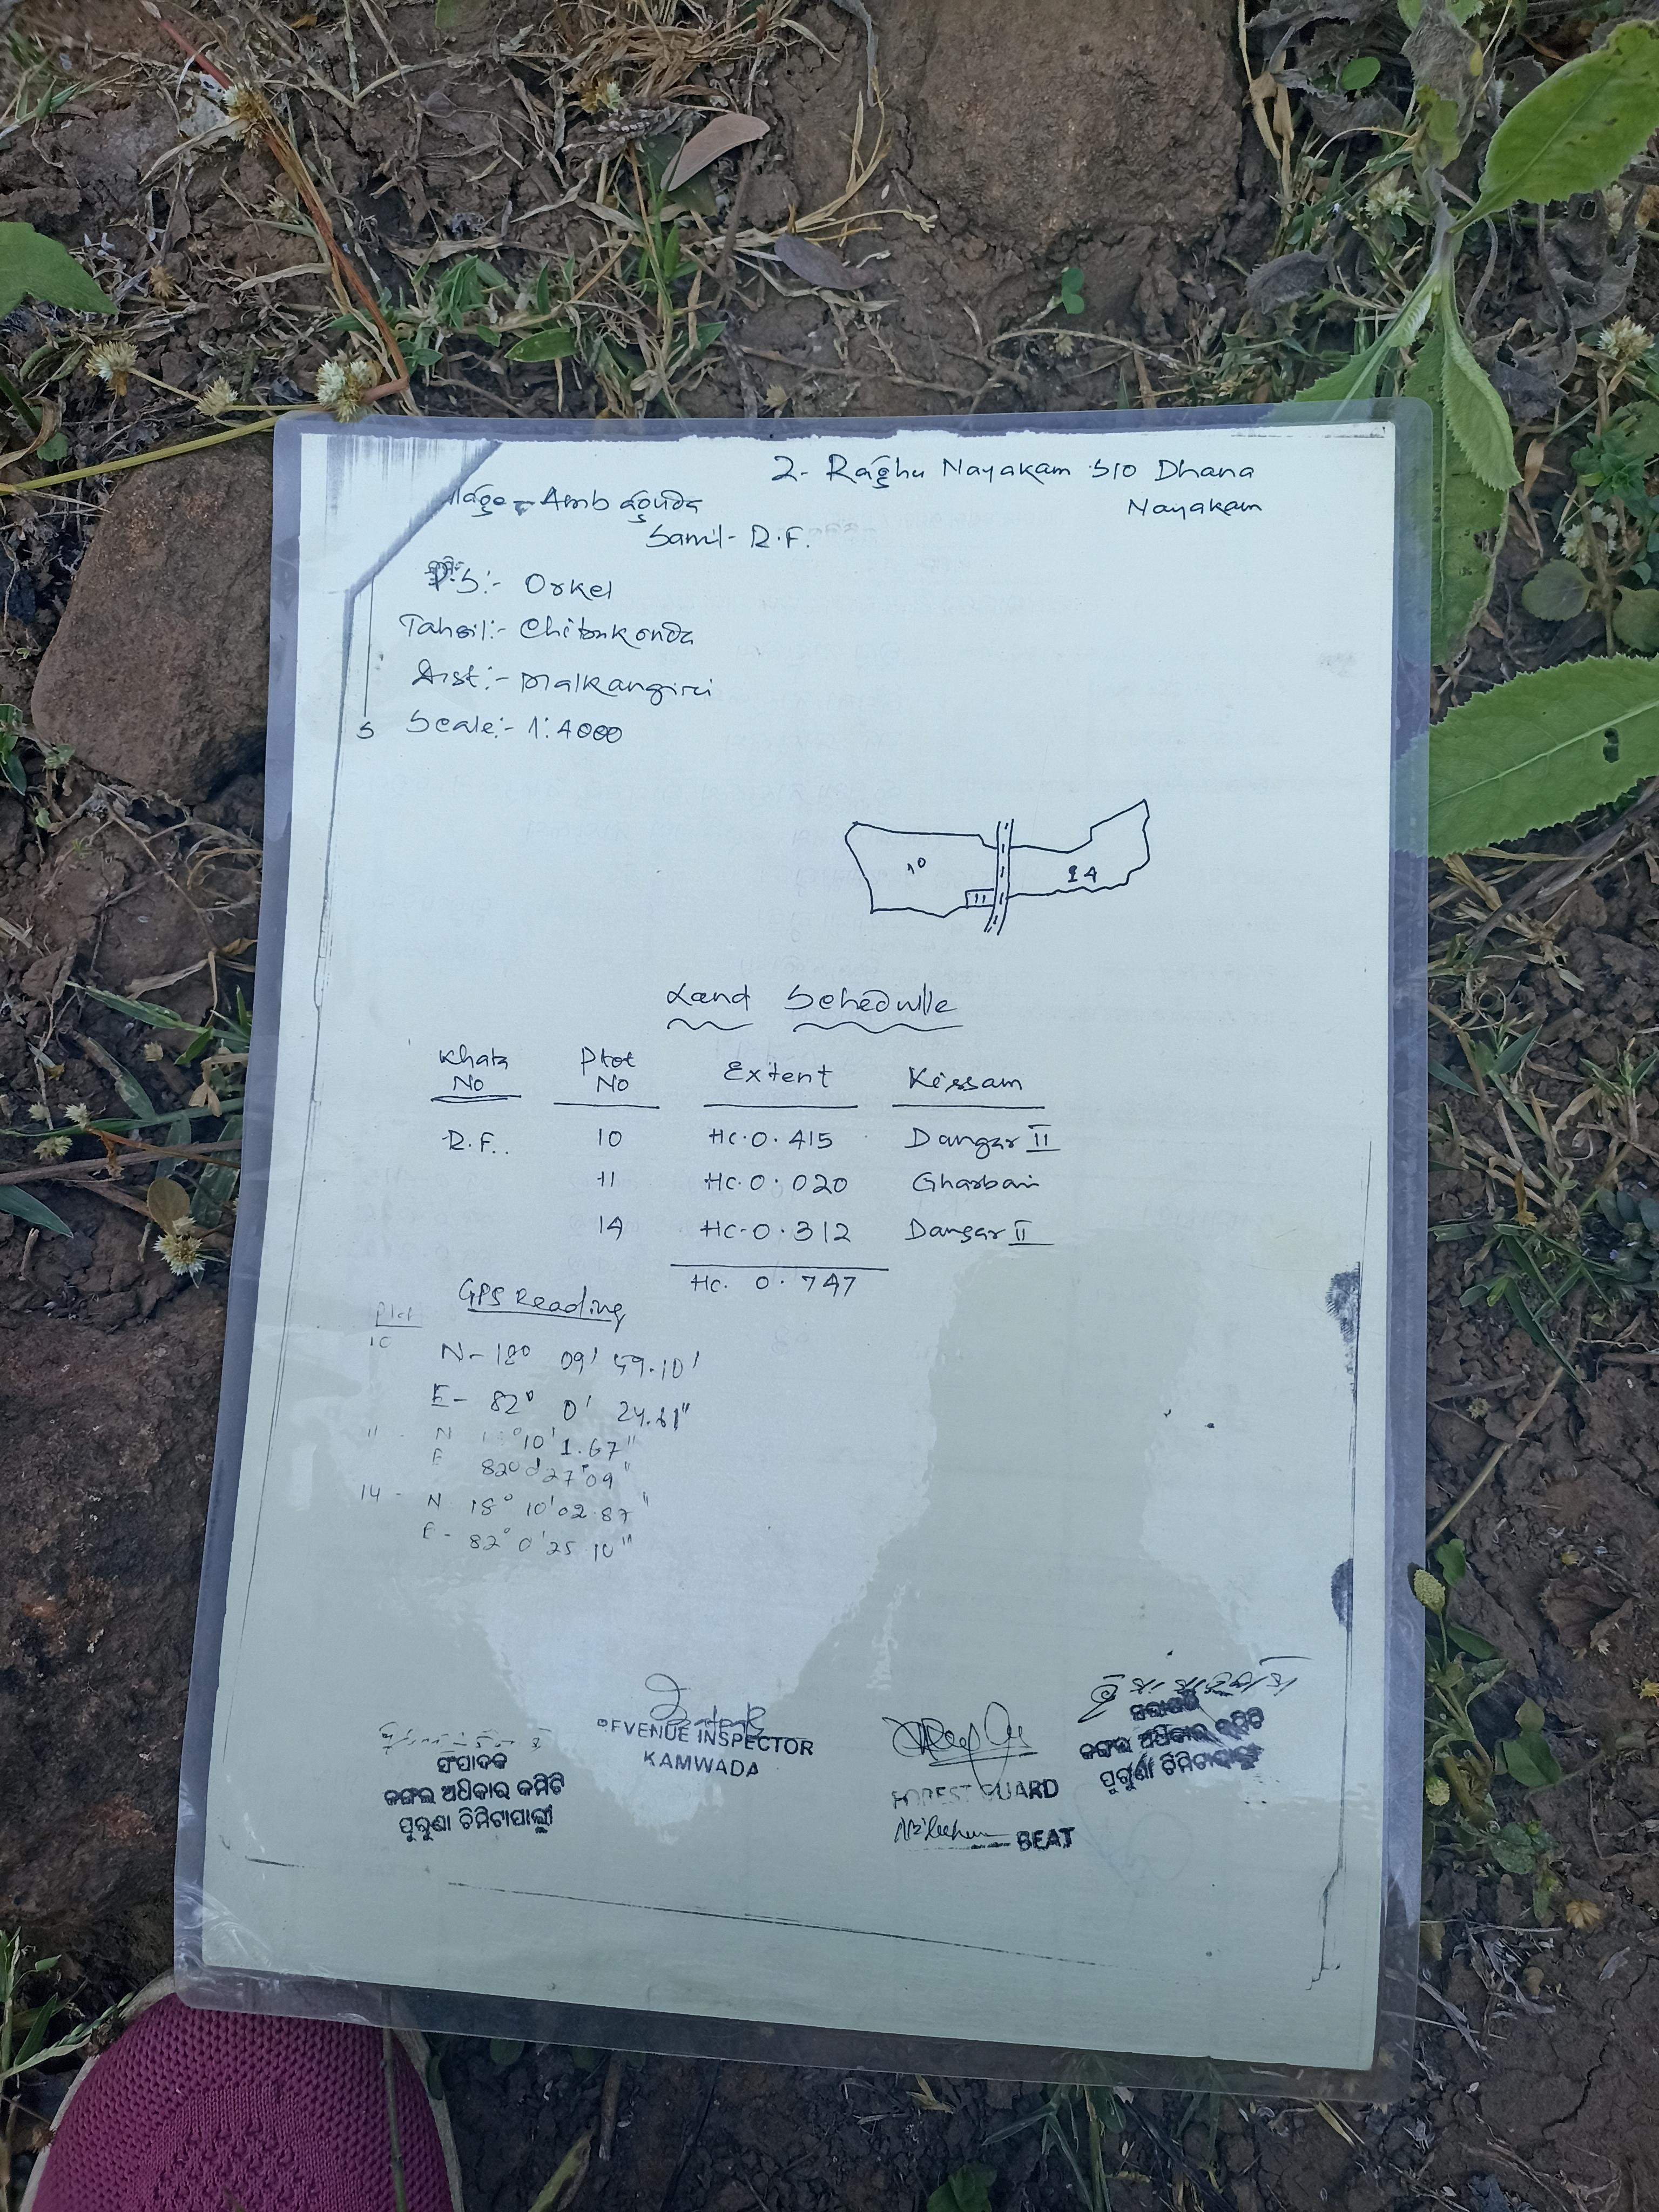 2- Raghu Nayakam S/O Dhana
Nayakam
Ambaguda
Samil- R.F.
P.S:- Orkel
Tahsil:- Chitrakonda
Dist:- Malkangiri
Scale:- 1:4000
S
10
11
14
Land Schedulle
Khata No
Plot No
Extent
Kissam
R.F.. 10 Hc.0.415 Dangar II
11 Hc.0.020 Gharbari
14 Hc-0.312 Dangar II
Hc. 0.747
GPS Reading
Plot
10
N- 18° 09' 59.10'
E- 82° 0' 24.61"
11 N °10' 1.67"
E 82° 0' 27.09"
14 - N 18° 10' 02.87"
E- 82° 0' 25.10"
ସଂପାଦକ
ଜଙ୍ଗଲ ଅଧିକାର କମିଟି
ପୁରୁଣା ଚିମିଟାପାଲ୍ଲୀ
REVENUE INSPECTOR
KAMWADA
FOREST GUARD
BEAT
ଜଙ୍ଗଲ ଅଧିକାର କମିଟି
ପୁରୁଣା ଚିମିଟାପାଲ୍ଲୀ